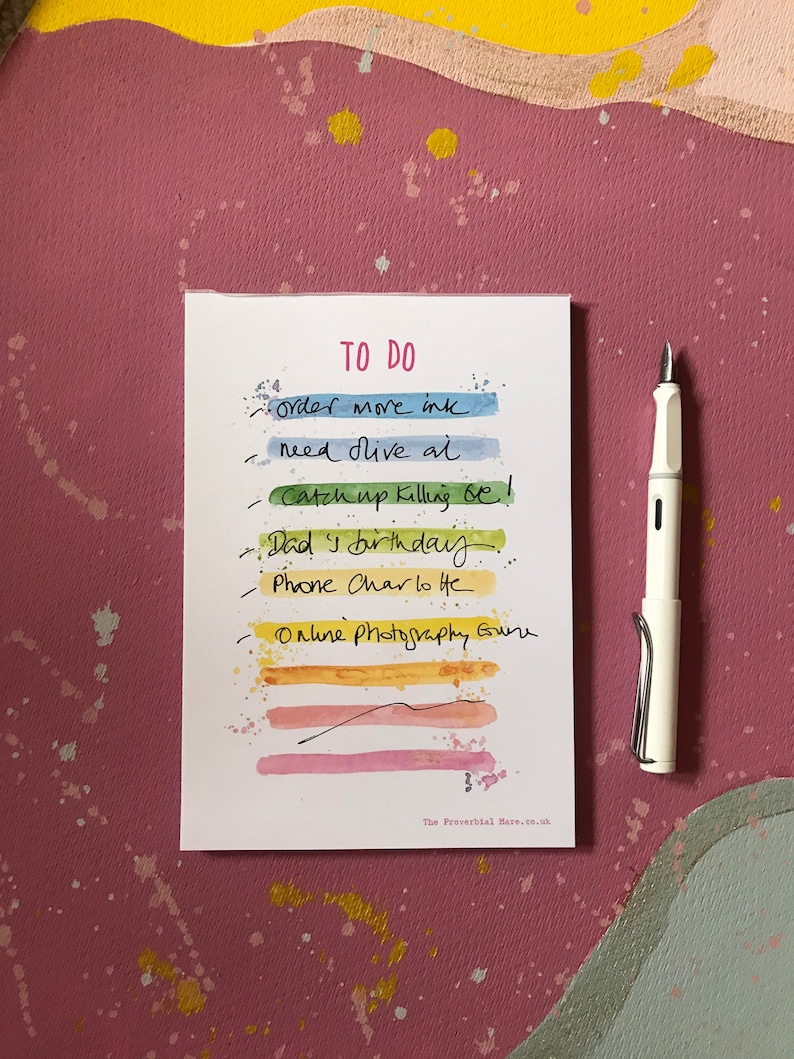 TO DO
- order more ink
- need olive oil
- Catch up Killing Eve!
- Dad's birthday
- Phone Charlotte
- Online photography Course
The Proverbial Hare.co.uk